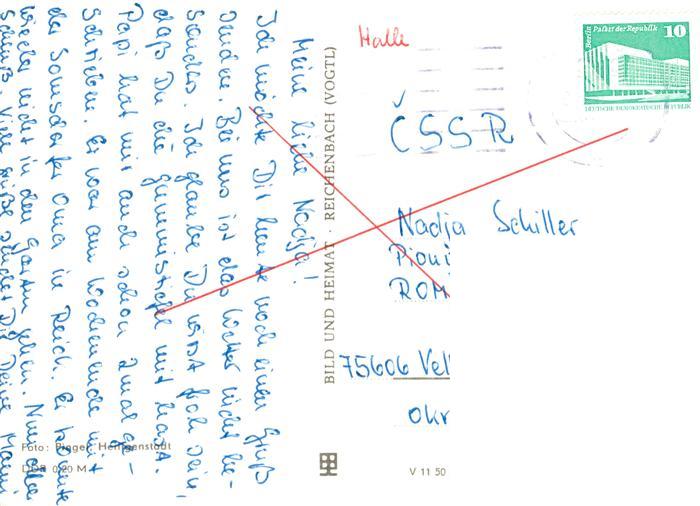 Meine liebe Nadja!
Ich möchte Dir heute noch einen Gruß
senden. Bei uns ist das Wetter nicht be-
sonders. Ich glaube Du wirst froh sein,
daß Du die Gummistiefel mit hast.
Papi hat mir auch schon 2mal ge-
schrieben. Er war am Wochenende mit
der Oma in Reich. Er konnte
wieder nicht in den Garten gehen. Nun aber
Schluß. Viele Grüße sendet Dir Deine Mami
Foto: Heiligenstadt
DDR 0,20 M
BILD UND HEIMAT · REICHENBACH (VOGTL)
V 11 50
Halle
Berlin Palast der Republik 10
DEUTSCHE DEMOKRATISCHE REPUBLIK
ČSSR
Nadja Schiller
Pioni
ROH
75606 Vel
okr